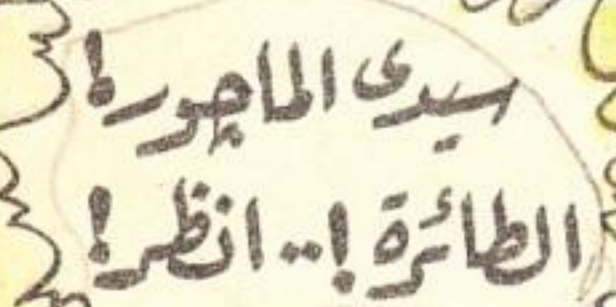 سيدى الماچور!
الطائرة!.. انظر!